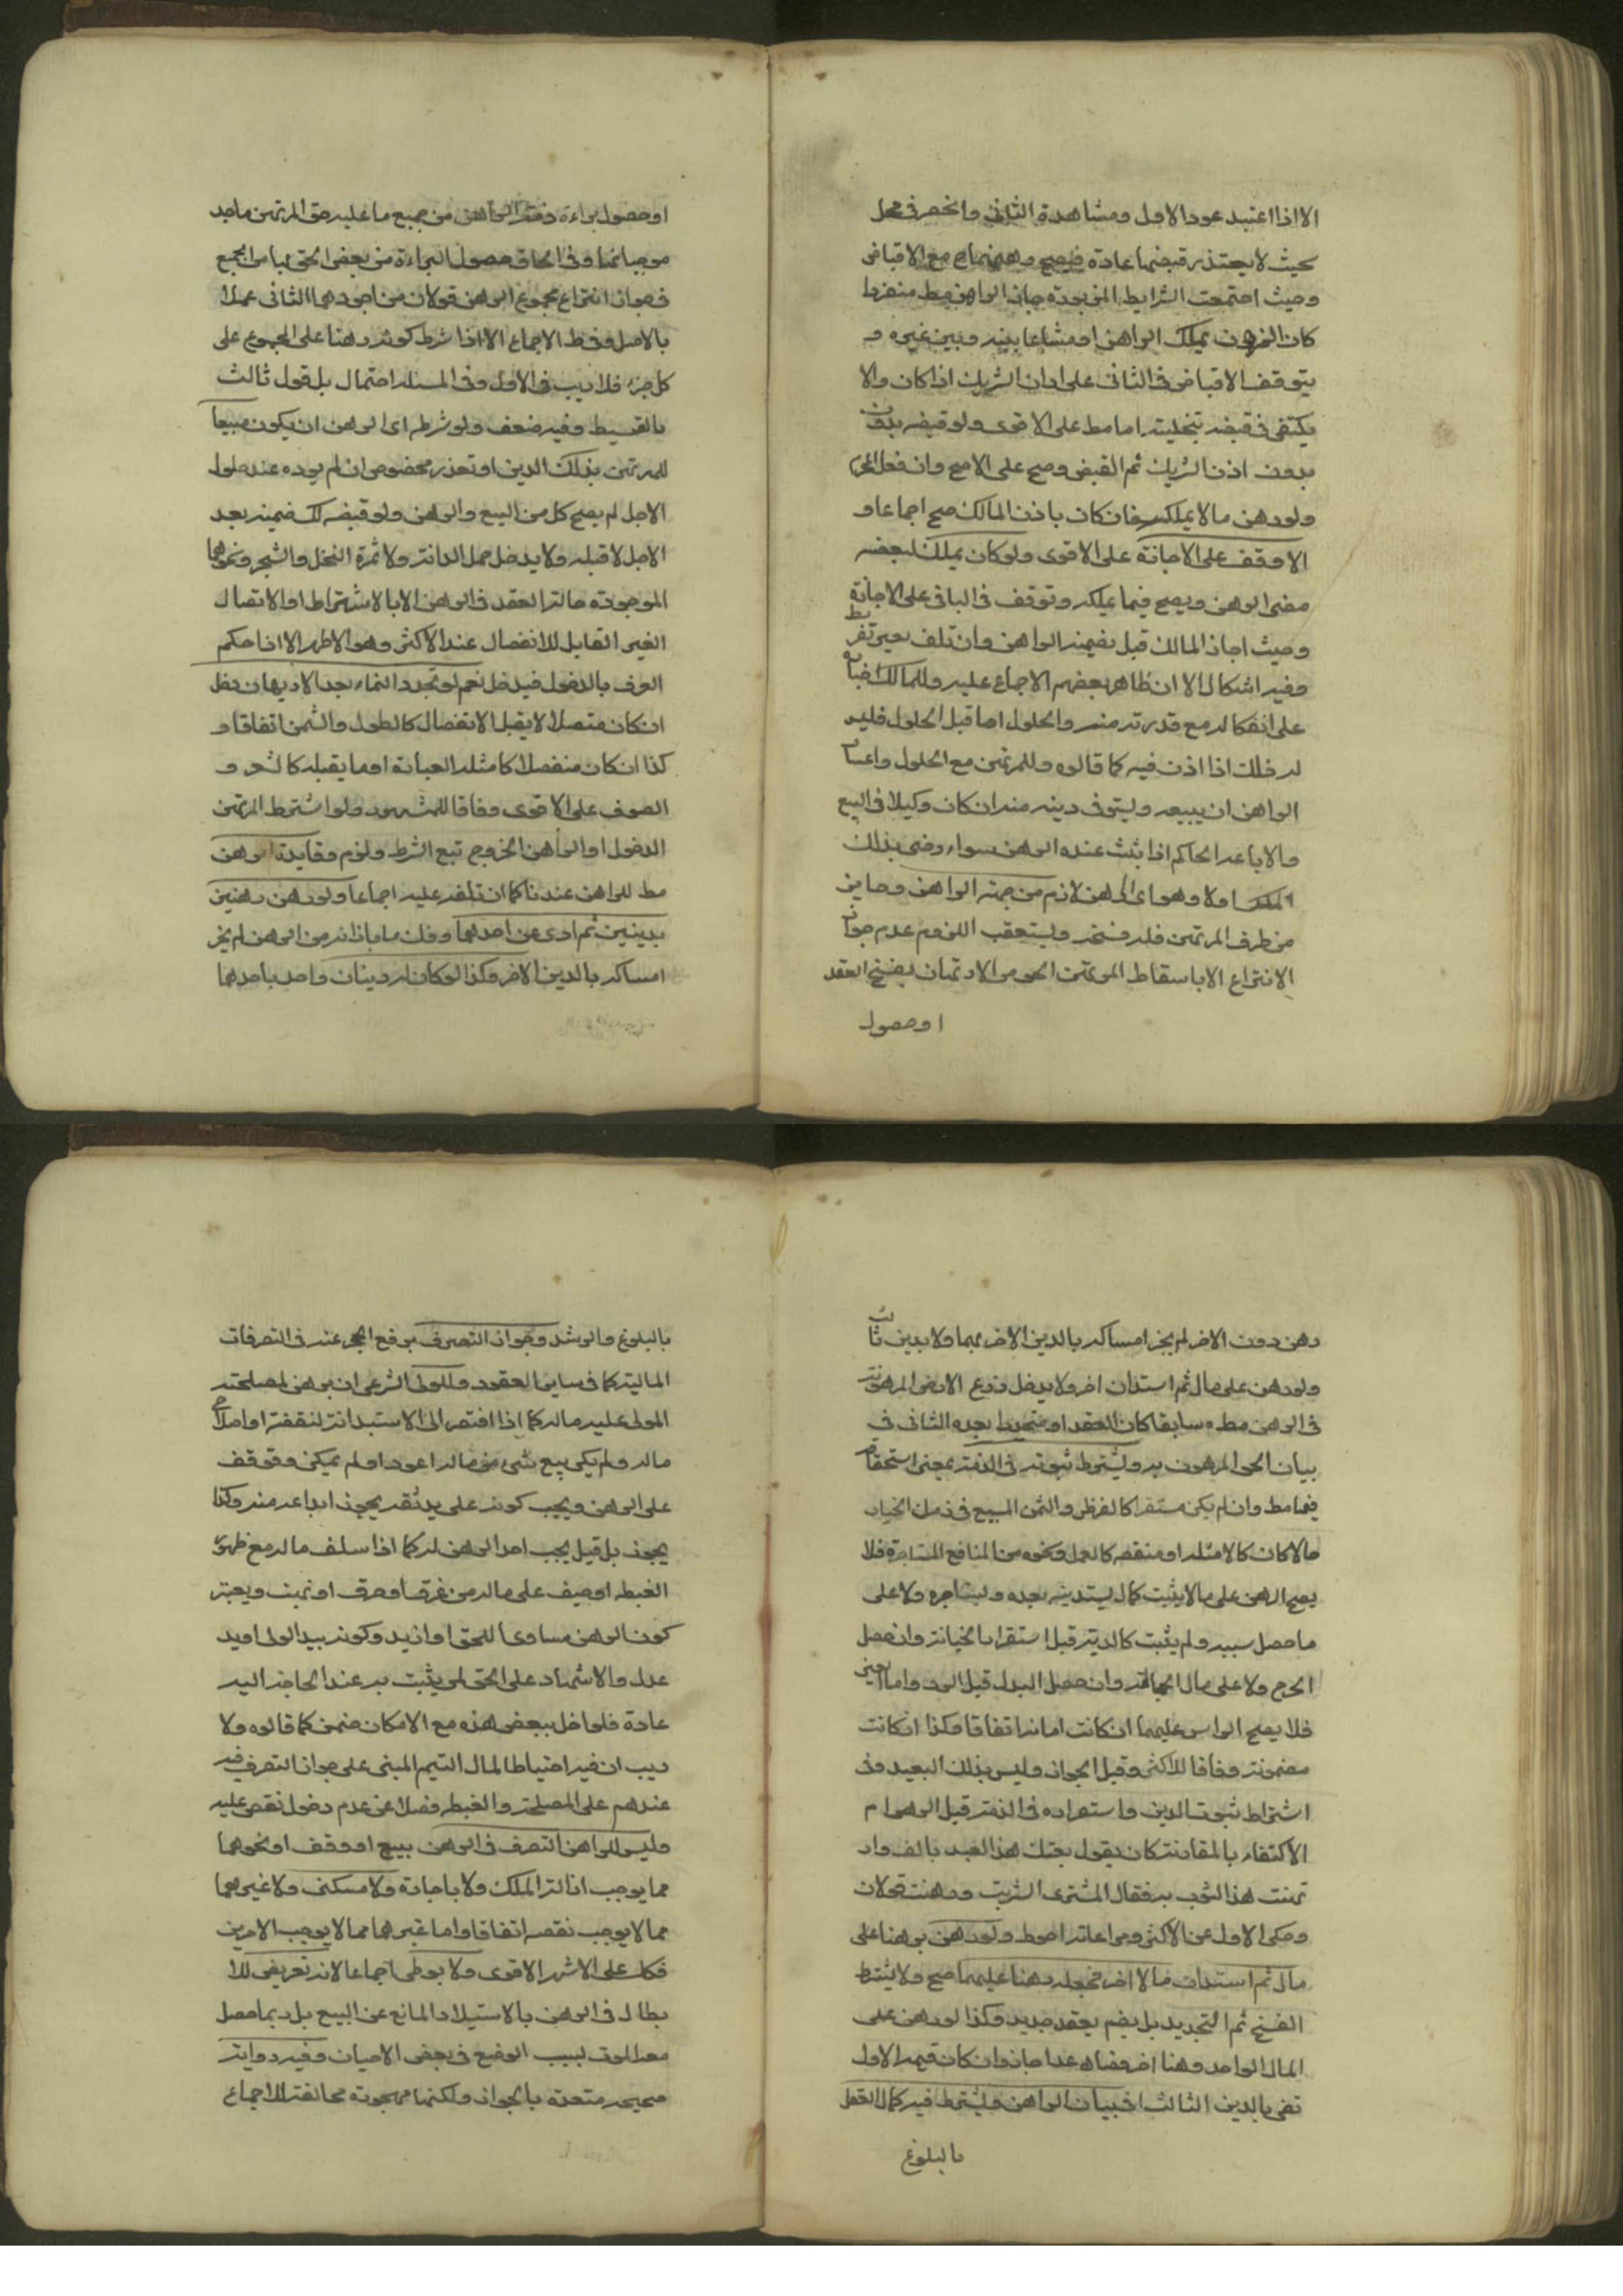 الا اذا اعتيد عود الاول ومشاهدة الثاني وانحصر في محل
بحيث لا يتعذر قبضها عادة فيصح رهنهما مع الاقباض
وحيث اجتمعت الشرايط المزبورة جاز الراهن مط منفردا
كان المرهون بملك الراهن او مشاعا بينه وبين غيره و
يتوقف الاقباض في الثاني على اذن الشريك اذا كان والا
يكتفى في قبضه بتخليته اما مط على الاقوى ولو قبضه بدون
بدون اذن الشريك ثم القبض وصح على الاصح وان فعل
ولو رهن ما لا يملكه فان كان باذن المالك صح اجماعا و
الا وقف على الاجازة على الاقوى ولو كان يملك بعضه
مضى الرهن ويصح فيما يملكه وتوقف في الباقي على الاجازة
وحيث اجاز المالك قبل بضمنه الراهن وان تلف بغير تفريط
وفيه اشكال الا ان ظاهر بعضهم الاجماع عليه وللمالك
على انفكاكه مع قدرته منه والحلول اما قبل الحلول فليس
له ذلك اذا اذن فيه كما قالوه وللمرتهن مع الحلول واعسار
الراهن ان يبيعه ويستوفي دينه منه ان كان وكيلا في البيع
والا باعه الحاكم اذا ثبت عنده الرهن سواء رضي بذلك
المالك ام لا وهو اى الرهن لازم من جهة الراهن وجايز
من طرف المرتهن فله فسخه ويستعقب اللزوم عدم جواز
الانتزاع الا باسقاط المرتهن الحق من الارتهان بفسخ العقد
او حصول
او حصول براءة ذمة الراهن من جميع ما عليه حق المرتهن ما جد
موجباتها وفى الحاق حصول البراءة من بعض الحق بها من الجميع
في جواز انتزاع مجموع الرهن قولان من اجودهما الثاني عملا
بالاصل وفط الاجماع الا اذا شرط كونه رهنا على المجموع على
كل جزء فلا ريب فى الاول وفى المسئلة احتمال بل قول ثالث
بالتقسيط وفيه ضعف ولو شرط اى الرهن ان يكون مبيعا
للمرتهن بذلك الدين او تعذر مخصوص ان لم يوده عند حلول
الاجل لم يصح كل من البيع والرهن ولو قبضه كك ضمنه بعد
الاجل لا قبله ولا يدخل حمل الدابة ولا ثمرة النخل والشجر ونحوهما
الموجودة حالة العقد فى الرهن الا بالاشتراط او الاتصال
الغير القابل للانفصال عند الاكثر وهو الاظهر الا اذا حكم
العرف بالدخول فيدخل نعم لو تجدد النماء بعد الارتهان دخل
ان كان متصلا لا يقبل الانفصال كالطول والسمن اتفاقا و
كذا ان كان منفصلا كما مثله العبارة او ما يقبله كالشعر و
الصوف على الاقوى وفاقا للمشهور ولو اشترط المرتهن
الدخول او الراهن الخروج تبع الشرط ولزم وفايدة الرهن
مط للراهن عندنا كما ان تلفه عليه اجماعا ولو رهن رهنين
بدينين ثم ادى عن احدهما وفك ما بازائه من الرهن لم يجز
امساكه بالدين الاخر وكذا لو كان له دينان واحد باحدهما
رهن دون الاخر لم يجز امساكه بالدين الاخر بهما ولا بدين ثالث
ولو رهن على مال ثم استدان اخر ولا يدخل زرع الارض المرهونة
فى الرهن مط سابقا كان العقد او متجددا بعده الثاني في
بيان الحق المرهون به ويشترط ثبوته فى الذمة بمعنى استحقاقه
فيها مط وان لم يكن مستقرا كالقرض والثمن المبيع فى زمن الخيار
حالا كان كالامثلة او منفعة كالعمل ونحوه من المنافع المستاجرة فلا
يصح الرهن على ما لا يثبت كمال يستدينه بعده وليستاجره ولا على
ما حصل سببه ولم يثبت كالدية قبل استقرار الجناية وان حصل
الجرح ولا على مال الجعالة وان حصل البدل قبل الرد واما العين
فلا يصح الرهن عليها ان كانت امانة اتفاقا وكذا ان كانت
مضمونة وفاقا للاكثر وقيل الجواز وليس بذلك البعيد وفى
اشتراط ثبوت الدين واستقراره فى الذمة قبل الرهن ام
الاكتفاء بالمقارنة كان يقول بعتك هذا العبد بالف وار
تهنت هذا الثوب به فقال المشترى اشتريت ورهنت قولان
وحكى الاول عن الاكثر ومراعاته احوط ولو رهن رهنا على
مال ثم استدان مالا اخر فجعله رهنا عليهما صح ولا يشترط
الفسخ ثم التجديد بل يضم بعقد جديد وكذا لو رهن على
المال الواحد رهنا اخر فصاعدا جاز وان كان قيمة الاول
تفى بالدين الثالث في بيان الراهن ويشترط فيه كمال العقل
بالبلوغ
بالبلوغ والرشد وجواز التصرف برفع الحجر عنه فى التصرفات
المالية كما فى ساير العقود وللولى الشرعى ان يرهن لمصلحة
المولى عليه ماله كما اذا افتقر الى الاستدانة لنفقته او اصلاح
ماله ولم يكن بيع شىء من ماله اعود او لم يمكن وتوقف
على الرهن ويجب كونه على يد ثقة يجوز ايداعه منه وكذا
يجوز بل قيل يجب اخذ الرهن له كما اذا سلف ماله مع ظهور
الغبطة او خيف على ماله من غرق او حرق او نهب ويعتبر
كون الرهن مساويا للحق او ازيد وكونه بيد الولى او يد
عدل والاشهاد على الحق لمن يثبت به عند الحاجة اليه
عادة فلو اخل ببعض هذه مع الامكان ضمن كما قالوه ولا
ريب ان فيه احتياطا لمال اليتيم المبنى على جواز التصرف فيه
عندهم على المصلحة والغبطة فضلا عن عدم دخول نقص عليه
وليس للراهن التصرف فى الرهن ببيع او وقف او نحوهما
مما يوجب ازالة الملك ولا باجارة ولا سكنى ولا غيرهما
مما لا يوجب نقصه اتفاقا واما غيرهما مما لا يوجب الامرين
فكك على الاشهر الاقوى ولا يوطى اجماعا لانه تعريض للا
بطال فى الرهن بالاستيلاد المانع عن البيع بل ربما حصل
معه الموت بسبب الوضع فى بعض الاحيان وفيه رواية
صحيحة متعددة بالجواز ولكنها مهجورة مخالفة للاجماع